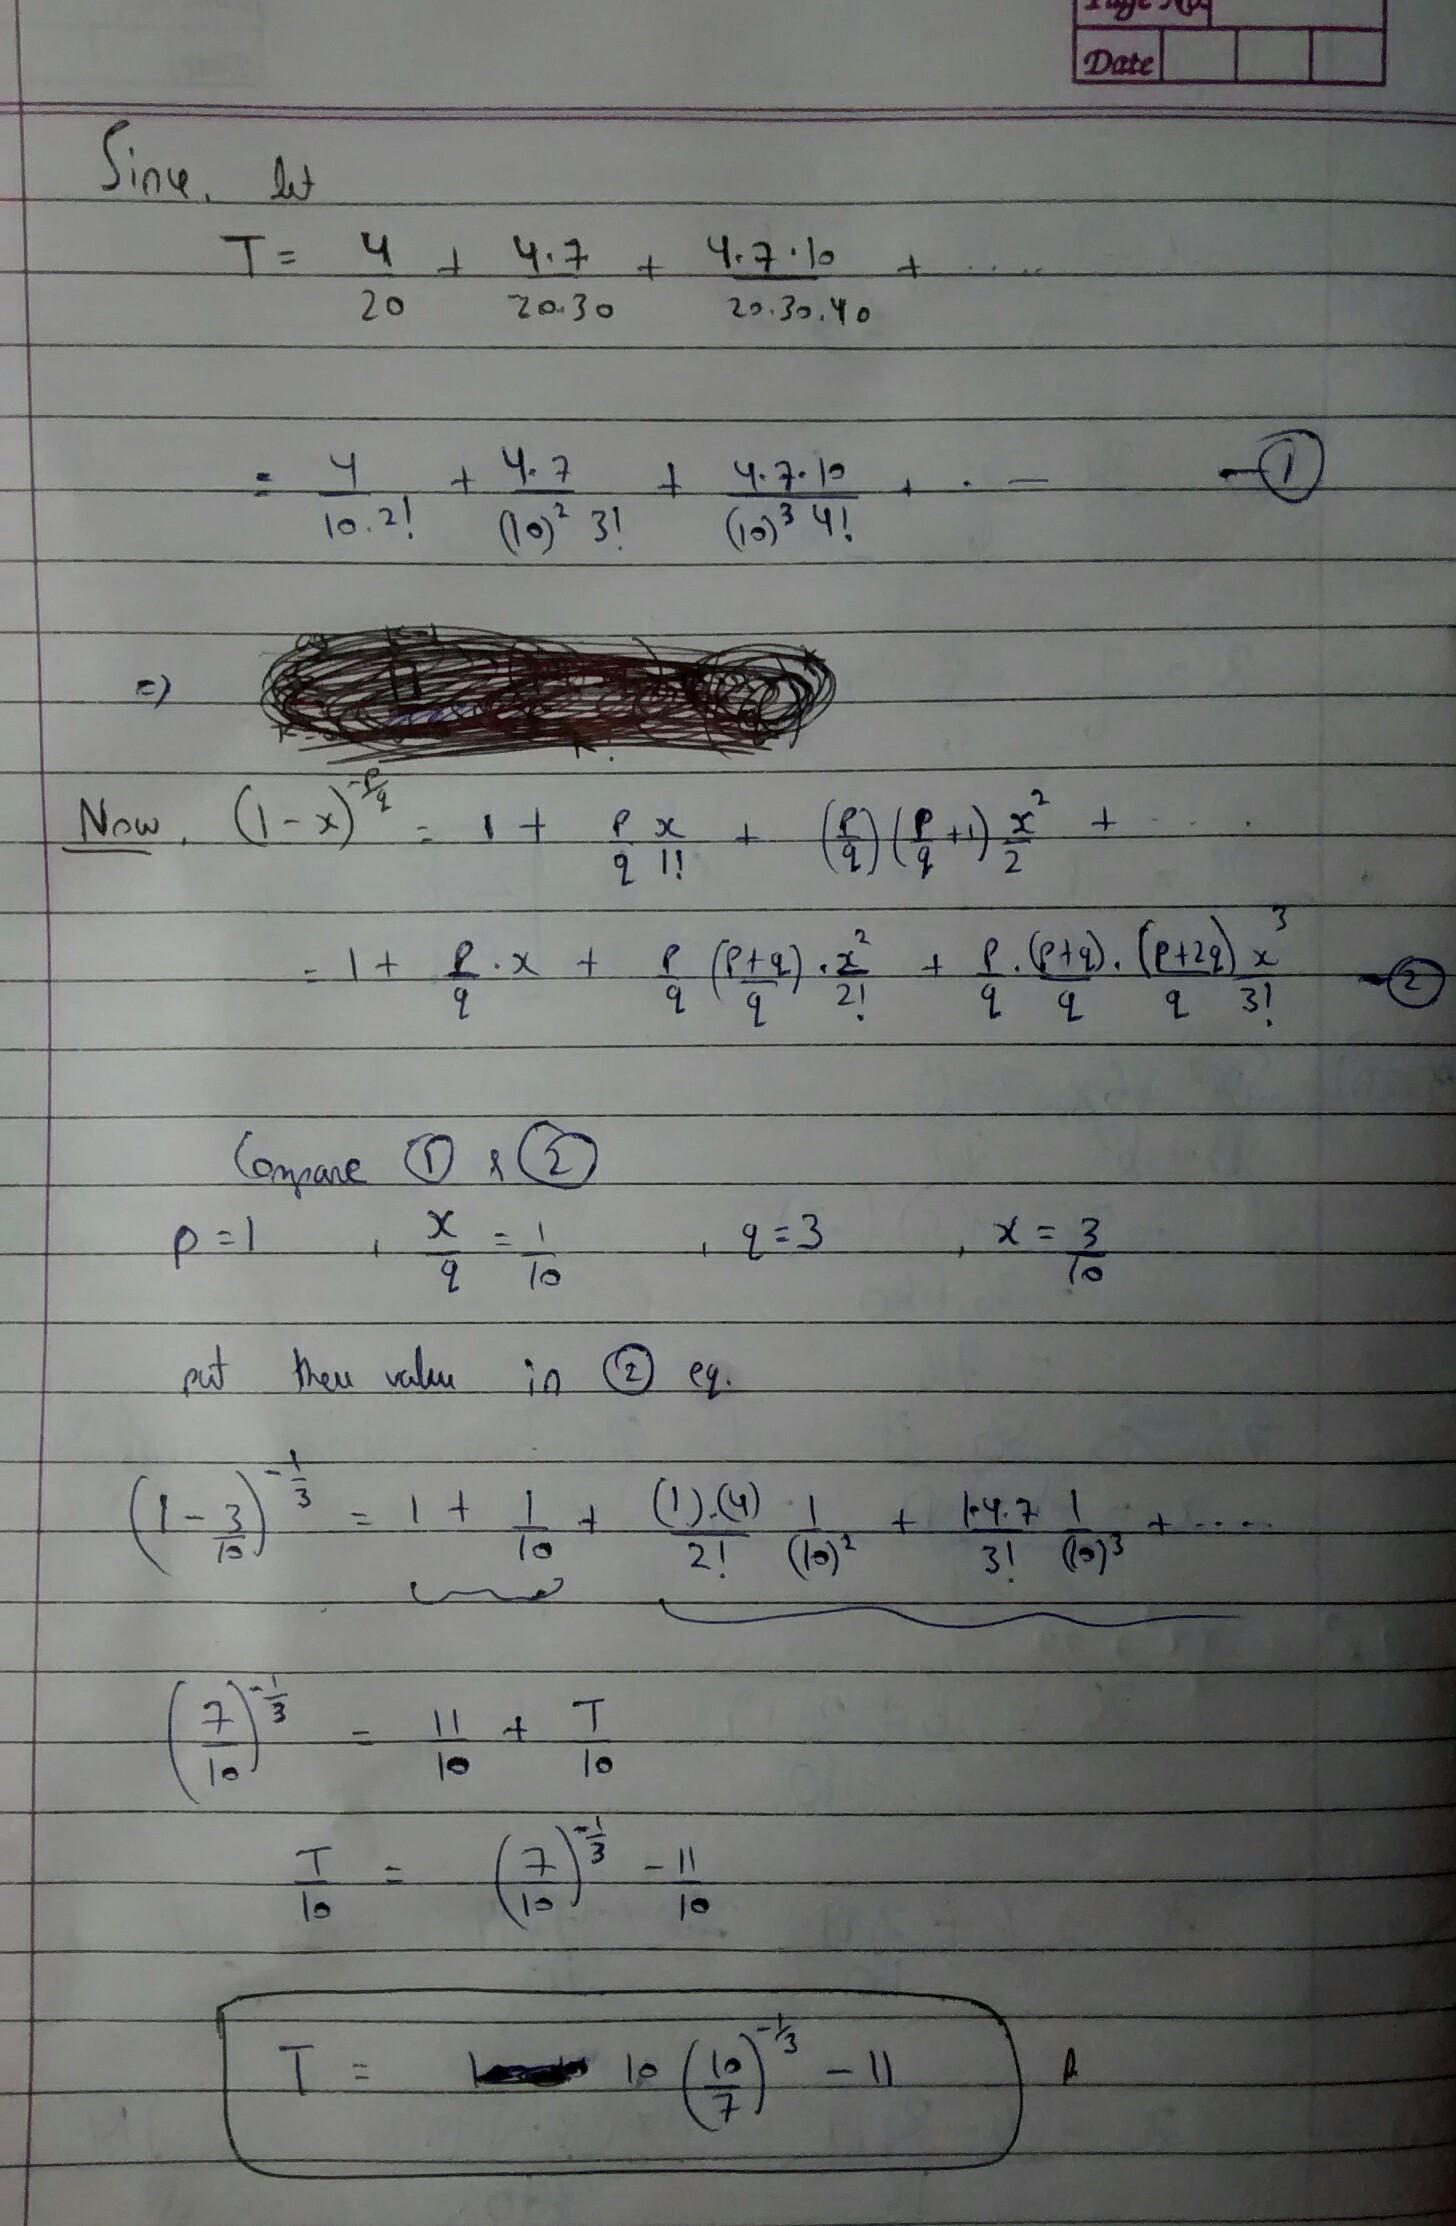 Page No.
Date
Since, let
T = 4/20 + 4.7/20.30 + 4.7.10/20.30.40 + .....
= 4/10.2! + 4.7/(10)² 3! + 4.7.10/(10)³ 4! + . — —①
=)
Now, (1-x)^(-p/q) = 1 + p/q x/1! + (p/q)(p/q+1) x²/2 + ....
= 1 + p/q . x + p/q (p+q)/q . x²/2! + p/q . (p+q)/q . (p+2q)/q x³/3! —②
Compare ① & ②
p = 1 , x/q = 1/10 , q = 3 , x = 3/10
put these value in ② eq.
(1 - 3/10)^(-1/3) = 1 + 1/10 + (1).(4)/2! 1/(10)² + 1.4.7/3! 1/(10)³ + ....
(7/10)^(-1/3) = 11/10 + T/10
T/10 = (7/10)^(-1/3) - 11/10
T = 10 (10/7)^(-1/3) - 11